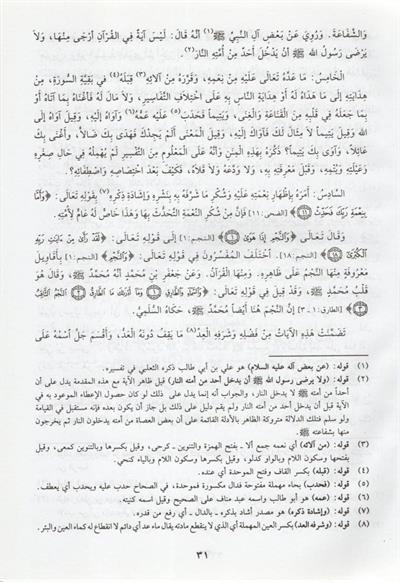 وَالشَّفَاعَةَ. وَرُوِيَ عَنْ بَعْضِ آلِ النَّبِيِّ ﷺ(١) أَنَّهُ قَالَ: لَيْسَ آيَةٌ فِي الْقُرْآنِ أَرْجَى مِنْهَا، وَلاَ
يَرْضَى رَسُولُ الله ﷺ أَنْ يَدْخُلَ أَحَدٌ مِنْ أُمَّتِهِ النَّارَ(٢).
الْخَامِسُ: مَا عَدَّهُ تَعَالَى عَلَيْهِ مِنْ نِعَمِهِ، وَقَرَّرَهُ مِنْ آلائِهِ(٣) قِبَلَهُ(٤) فِي بَقِيَّةِ السُّورَةِ، مِنْ
هِدَايَتِهِ إِلَى مَا هَدَاهُ لَهُ أَوْ هِدَايَةِ النَّاسِ بِهِ عَلَى اخْتِلاَفِ التَّفَاسِيرِ، وَلاَ مَالَ لَهُ فَأَغْنَاهُ بِمَا آتَاهُ أَوْ
بِمَا جَعَلَهُ فِي قَلْبِهِ مِنَ الْقَنَاعَةِ وَالْغِنَى، وَيَتِيماً فَحَدَبَ(٥) عَلَيْهِ عَمُّهُ(٦) وَآوَاهُ إِلَيْهِ، وَقِيلَ آوَاهُ إِلَى
الله، وَقِيلَ يَتِيماً لاَ مِثَالَ لَكَ فَآوَاكَ إِلَيْهِ، وَقِيلَ الْمَعْنَى أَلَمْ يَجِدْكَ فَهَدَى بِكَ ضَالاًّ، وَأَغْنَى بِكَ
عَائِلاً، وَآوَى بِكَ يَتِيماً؟ ذَكَّرَهُ بِهَذِهِ الْمِنَنِ وَأَنَّهُ عَلَى الْمَعْلُومِ مِنَ التَّفْسِيرِ لَمْ يُهْمِلْهُ فِي حَالِ صِغَرِهِ
وَعَيْلَتِهِ وَيُتْمِهِ، وَقَبْلَ مَعْرِفَتِهِ بِهِ، وَلاَ وَدَّعَهُ وَلاَ قَلاَهُ، فَكَيْفَ بَعْدَ اخْتِصَاصِهِ وَاصْطِفَائِهِ؟.
السَّادِسُ: أَمَرَهُ بِإِظْهَارِ نِعْمَتِهِ عَلَيْهِ وَشُكْرِ مَا شَرَّفَهُ بِهِ بِنَشْرِهِ وَإِشَادَةِ ذِكْرِهِ(٧) بِقَوْلِهِ تَعَالَى: ﴿وَأَمَّا
بِنِعْمَةِ رَبِّكَ فَحَدِّثْ ١١﴾ [الضحى: ١١] فَإِنَّ مِنْ شُكْرِ النِّعْمَةِ التَّحَدُّثَ بِهَا وَهَذَا خَاصٌّ لَهُ عَامٌّ لأُمَّتِهِ.
وَقَالَ تَعَالَى ﴿وَالنَّجْمِ إِذَا هَوَى ١﴾ [النجم: ١] إِلَى قَوْلِهِ تَعَالَى: ﴿لَقَدْ رَأَى مِنْ آيَاتِ رَبِّهِ
الْكُبْرَى ١٨﴾ [النجم: ١٨]. اخْتَلَفَ الْمُفَسِّرُونَ فِي قَوْلِهِ تَعَالَى: ﴿وَالنَّجْمِ﴾ بِأَقَاوِيلَ
مَعْرُوفَةٍ مِنْهَا النَّجْمُ عَلَى ظَاهِرِهِ. وَمِنْهَا الْقُرْآنُ. وَعَنْ جَعْفَرِ بْنِ مُحَمَّدٍ أَنَّهُ مُحَمَّدٌ ﷺ، وَقَالَ هُوَ
قَلْبُ مُحَمَّدٍ ﷺ، وَقَدْ قِيلَ فِي قَوْلِهِ تَعَالَى: ﴿وَالسَّمَاءِ وَالطَّارِقِ ١ وَمَا أَدْرَاكَ مَا الطَّارِقُ ٢ النَّجْمُ الثَّاقِبُ
٣﴾ [الطارق: ١ ـ ٣] إِنَّ النَّجْمَ هُنَا أَيْضاً مُحَمَّدٌ ﷺ، حَكَاهُ السُّلَمِيُّ.
تَضَمَّنَتْ هَذِهِ الآيَاتُ مِنْ فَضْلِهِ وَشَرَفِهِ الْعِدِّ(٨) مَا يَقِفُ دُونَهُ الْعَدُّ، وَأَقْسَمَ جَلَّ اسْمُهُ عَلَى
(١) قوله: (عن بعض آله عليه السلام) هو علي بن أبي طالب ذكره الثعلبي في تفسيره.
(٢) قوله: (ولا يرضى رسول الله ﷺ أن يدخل أحد من أمته النار) قيل ظاهر الآية مع هذه المقدمة يدل على أن
أحداً من أمته ﷺ لا يدخل النار، والجواب أنه إنما يدل على ذلك لو كان حصول الإعطاء الموعود به في
الآية قبل أن يدخل أحد من أمته النار ولم يقم دليل على ذلك بل جاز أن يكون بعده فإنه مستقبل في القيامة
ولو سلم فتلك الدلالة متروكة الظاهر بالأدلة القائمة على أن بعض العصاة من أمته يدخلون النار ثم يخرجون
منها بشفاعته ﷺ.
(٣) قوله: (من آلائه) أي نعمه جمع ألا ـ بفتح الهمزة والتنوين ـ كرحى، وقيل بكسرها وبالتنوين كمعى، وقيل
بفتحها وسكون اللام وبالواو كدلو، وقيل بكسرها وسكون اللام وبالياء كنحي.
(٤) قوله: (قبله) بكسر القاف وفتح الموحدة أي عنده.
(٥) قوله: (فحدب) بحاء مهملة مفتوحة فدال مكسورة فموحدة، في الصحاح حدب عليه ويحدب أي يعطف.
(٦) قوله: (عمه) هو أبو طالب واسمه عبد مناف على الصحيح وقيل اسمه كنيته.
(٧) قوله: (وإشادة ذكره) هو مصدر أشاد بذكره ـ بالدال ـ أي رفع من قدره.
(٨) قوله: (وشرفه العد) بكسر العين المهملة أي الذي لا ينقطع مادته يقال ماء عد أي دائم لا انقطاع له كماء العين والبئر.
٣١